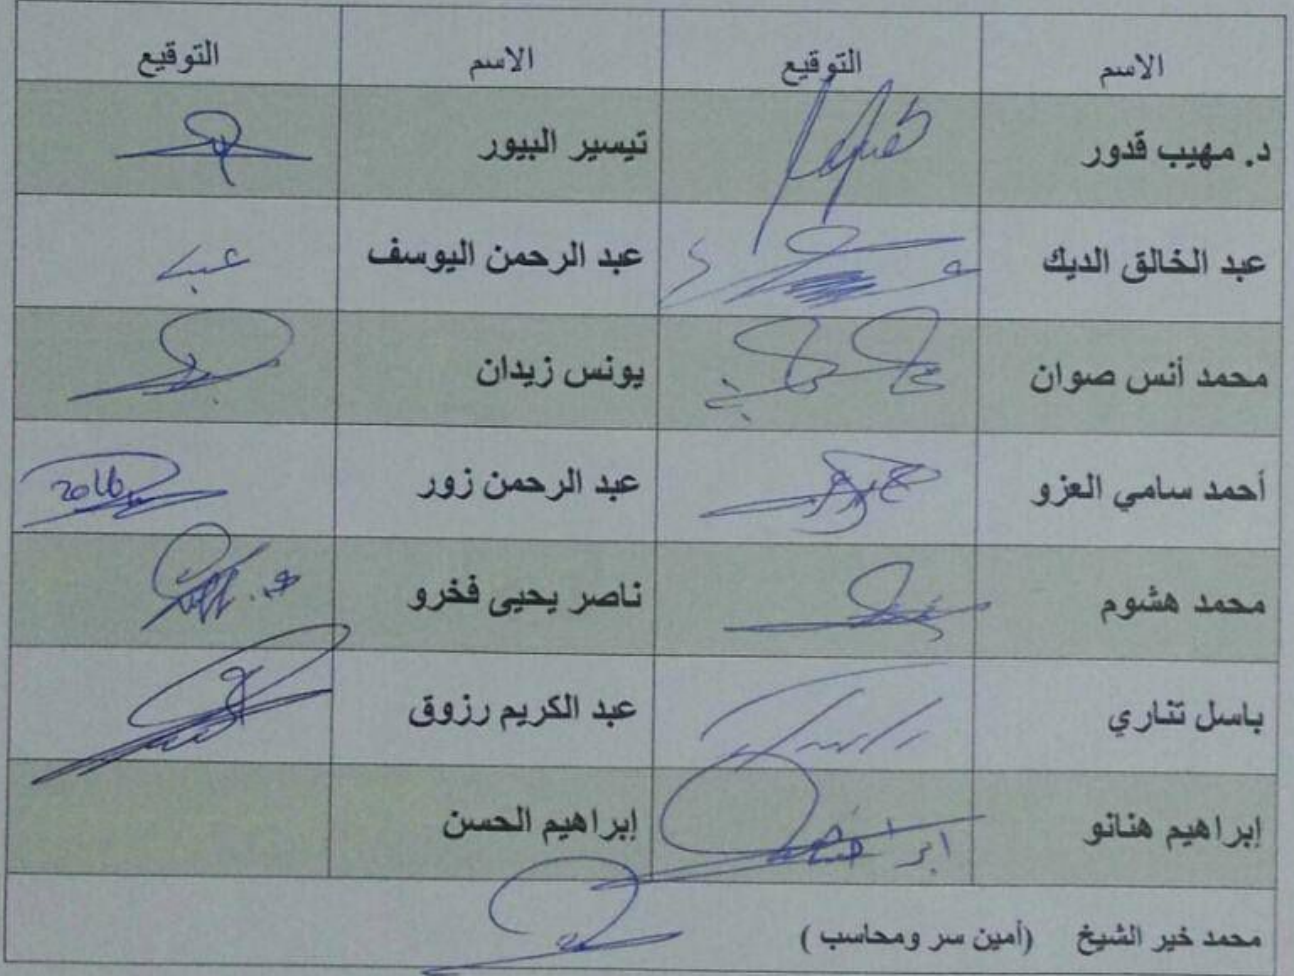 الاسم التوقيع الاسم التوقيع
د. مهيب قدور تيسير البيور
عبد الخالق الديك عبد الرحمن اليوسف
محمد أنس صوان يونس زيدان
أحمد سامي العزو عبد الرحمن زور 2016
محمد هشوم ناصر يحيى فخرو
باسل تناري عبد الكريم رزوق
إبراهيم هنانو إبراهيم الحسن
محمد خير الشيخ (أمين سر ومحاسب)